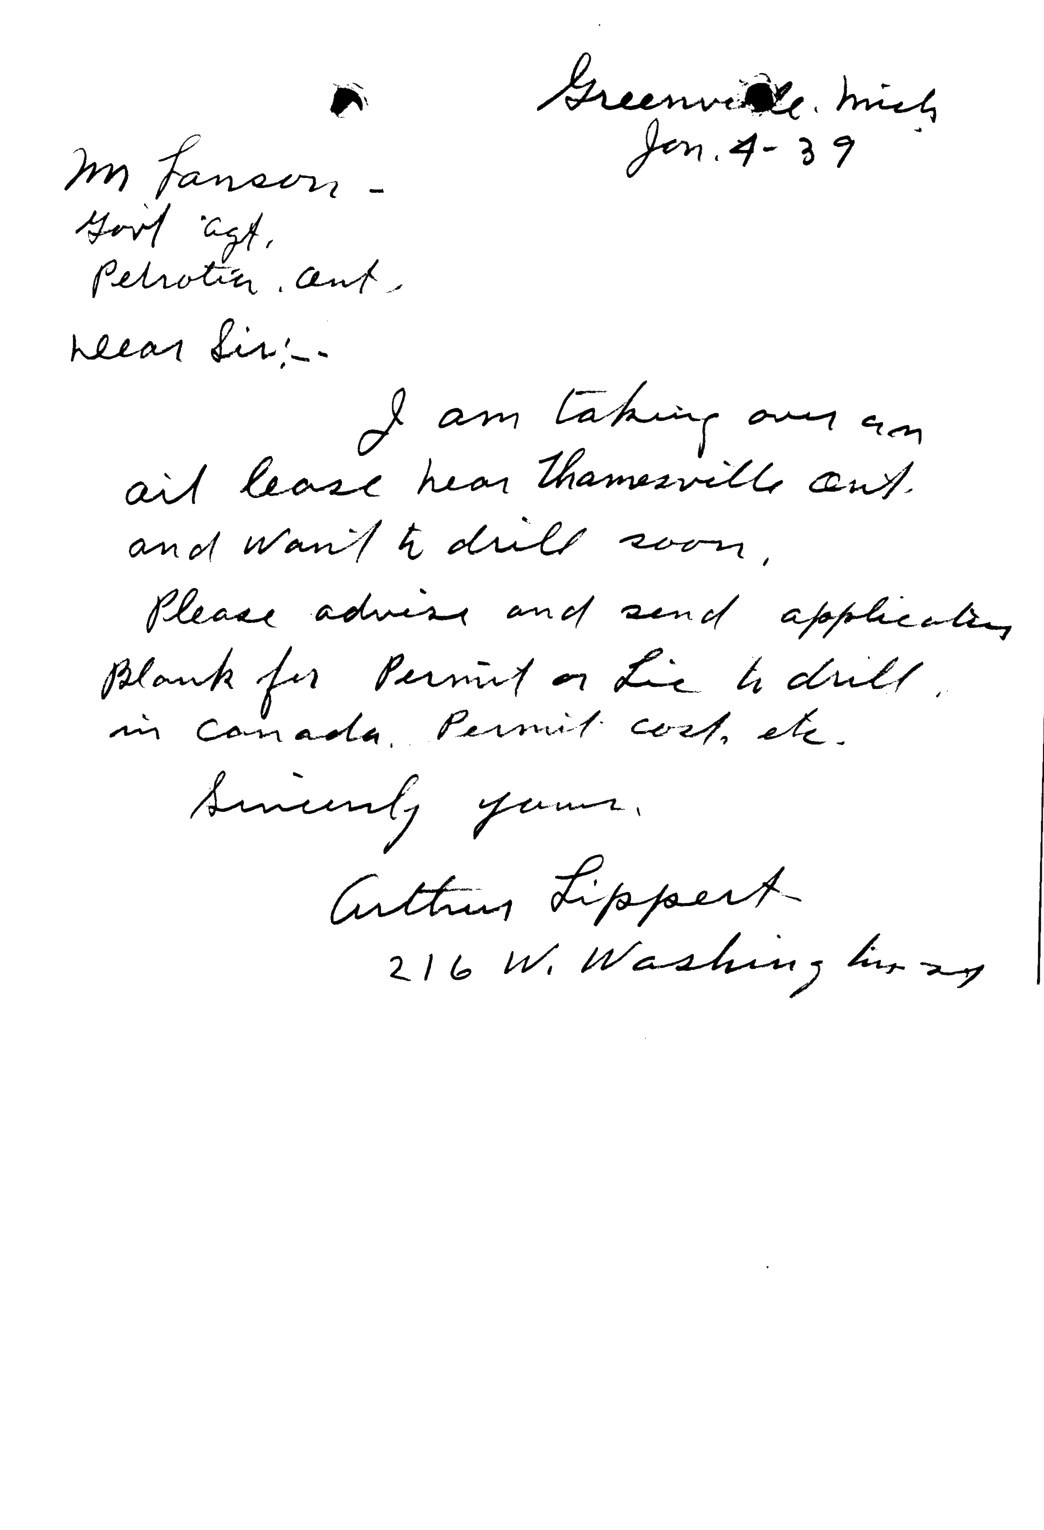 Greenville. Mich
Jan. 4-39
Mr Lanson -
Govt Agt,
Petrolia. Ont.
Dear Sir:--
I am taking over an
oil lease near Thamesville Ont.
and want to drill soon,
Please advise and send application
Blank for Permit or Lic to drill.
in Canada. Permit cost, etc.
Sincerely yours.
Arthur Lippert
216 W. Washington St